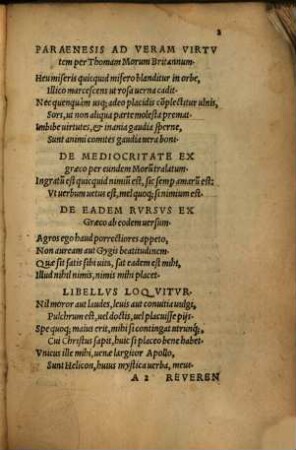 2
PARAENESIS AD VERAM VIRTV
tem per Thomam Morum Britannum.
Heu miseris quicquid misero blanditur in orbe,
Illico marcescens ut rosa uerna cadit.
Nec quenquàm usq; adeo placidis cõplectitur ulnis,
Sors, ut non aliqua parte molesta premat.
Imbibe uirtutes, & inania gaudia sperne,
Sunt animi comites gaudia uera boni.
DE MEDIOCRITATE EX
græco per eundem Morũ tralatum.
Ingratũ est quicquid nimiũ est, sic semp amarũ est:
Vt uerbum uetus est, mel quoq; si nimium est.
DE EADEM RVRSVS EX
Græco ab eodem uersum.
Agros ego haud porrectiores appeto,
Non auream aut Gygis beatitudinem.
Quæ sit satis sibi uita, sat eadem est mihi,
Illud nihil nimis, nimis mihi placet.
LIBELLVS LOQVITVR.
Nil moror aut laudes, leuis aut conuitia uulgi,
Pulchrum est, uel doctis, uel placuisse pijs.
Spe quoq; maius erit, mihi si contingat utrunq;,
Cui Christus sapit, huic si placeo bene habet.
Vnicus ille mihi, uenæ largitor Apollo,
Sunt Helicon, huius mystica uerba, meus.
A 2 REVEREN